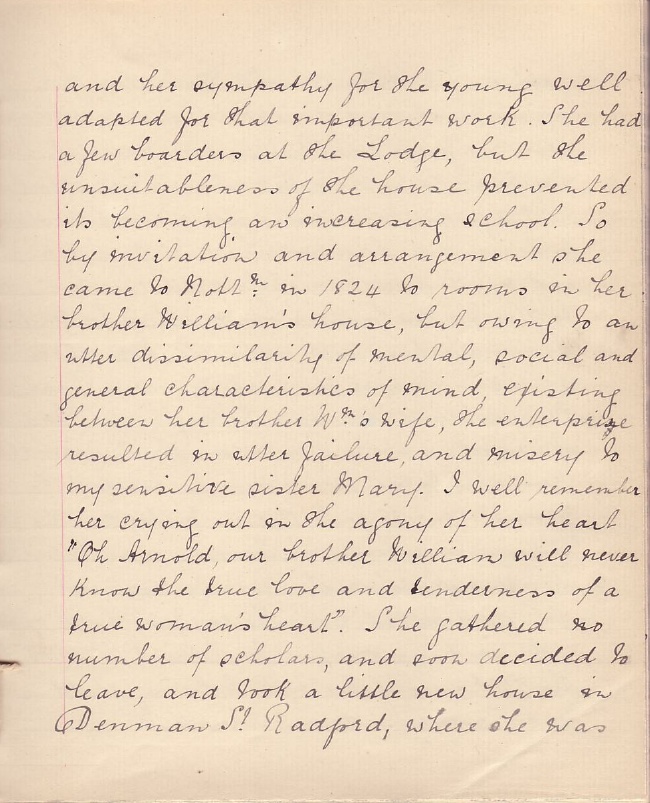 and her sympathy for the young well
adapted for that important work. She had
a few boarders at the Lodge, but the
unsuitableness of the house prevented
its becoming an increasing school. So
by invitation and arrangement she
came to Nottm in 1824 to rooms in her
brother William's house, but owing to an
utter dissimilarity of mental, social and
general characteristics of mind, existing
between her brother Wm's wife, the enterprize
resulted in utter failure, and misery to
my sensitive sister Mary. I well remember
her crying out in the agony of her heart
"Oh Arnold, our brother William will never
know the true love and tenderness of a
true woman's heart". She gathered no
number of scholars, and soon decided to
leave, and took a little new house in
Denman St Radford, where she was